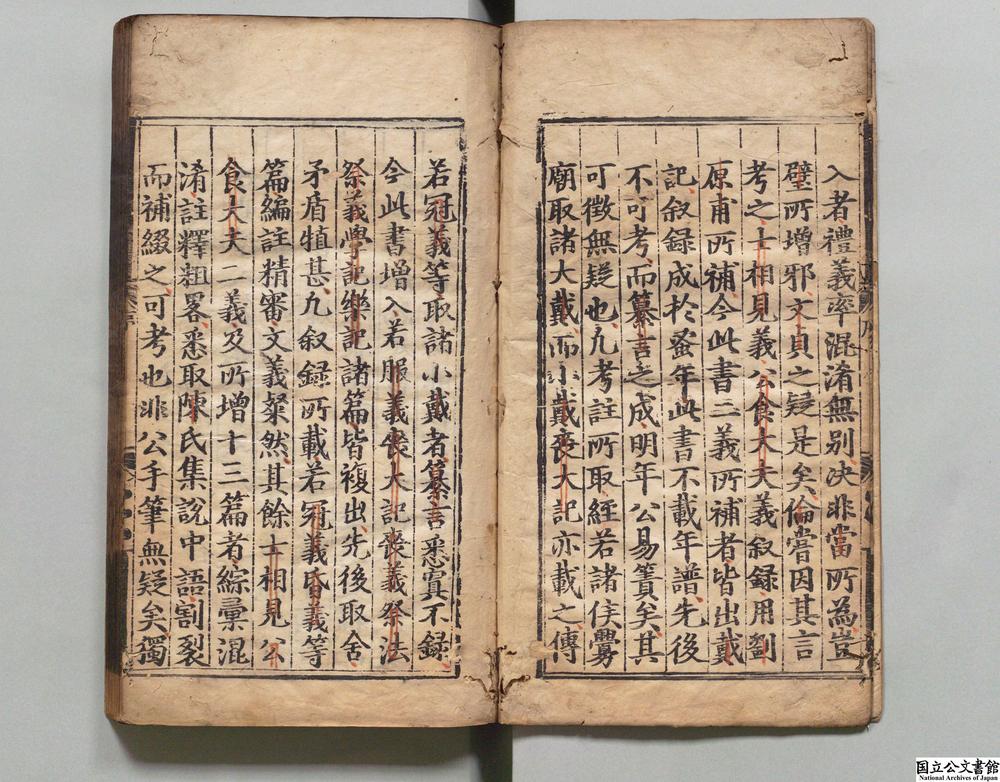 入者禮義率混淆無别决非當所為豈
璧所增邪文貝之疑是矣倫嘗因其言
考之士相見義公食大夫義叙録用劉
原甫所補今此書二義所補者皆出戴
記叙録成於蚤年此書不載年譜先後
不可考而纂言之成明年公易簀矣其
可徵無疑也九考註所取經若諸侯釁
廟取諸大戴而小戴喪大記亦載之傳
若冠義等取諸小戴者纂言悉寘不録
今此書增入若服義喪大記喪義祭法
祭義學記樂記諸篇皆複出先後取舍
矛盾犆甚九叙録所載若冠義昏義等
篇編註精審文義粲然其餘士相見公
食大夫二義及所增十三篇者綜彙混
淆註釋粗畧悉取陳氏集說中語割裂
而補綴之可考也非公手筆無疑矣獨
国立公文書館
National Archives of Japan